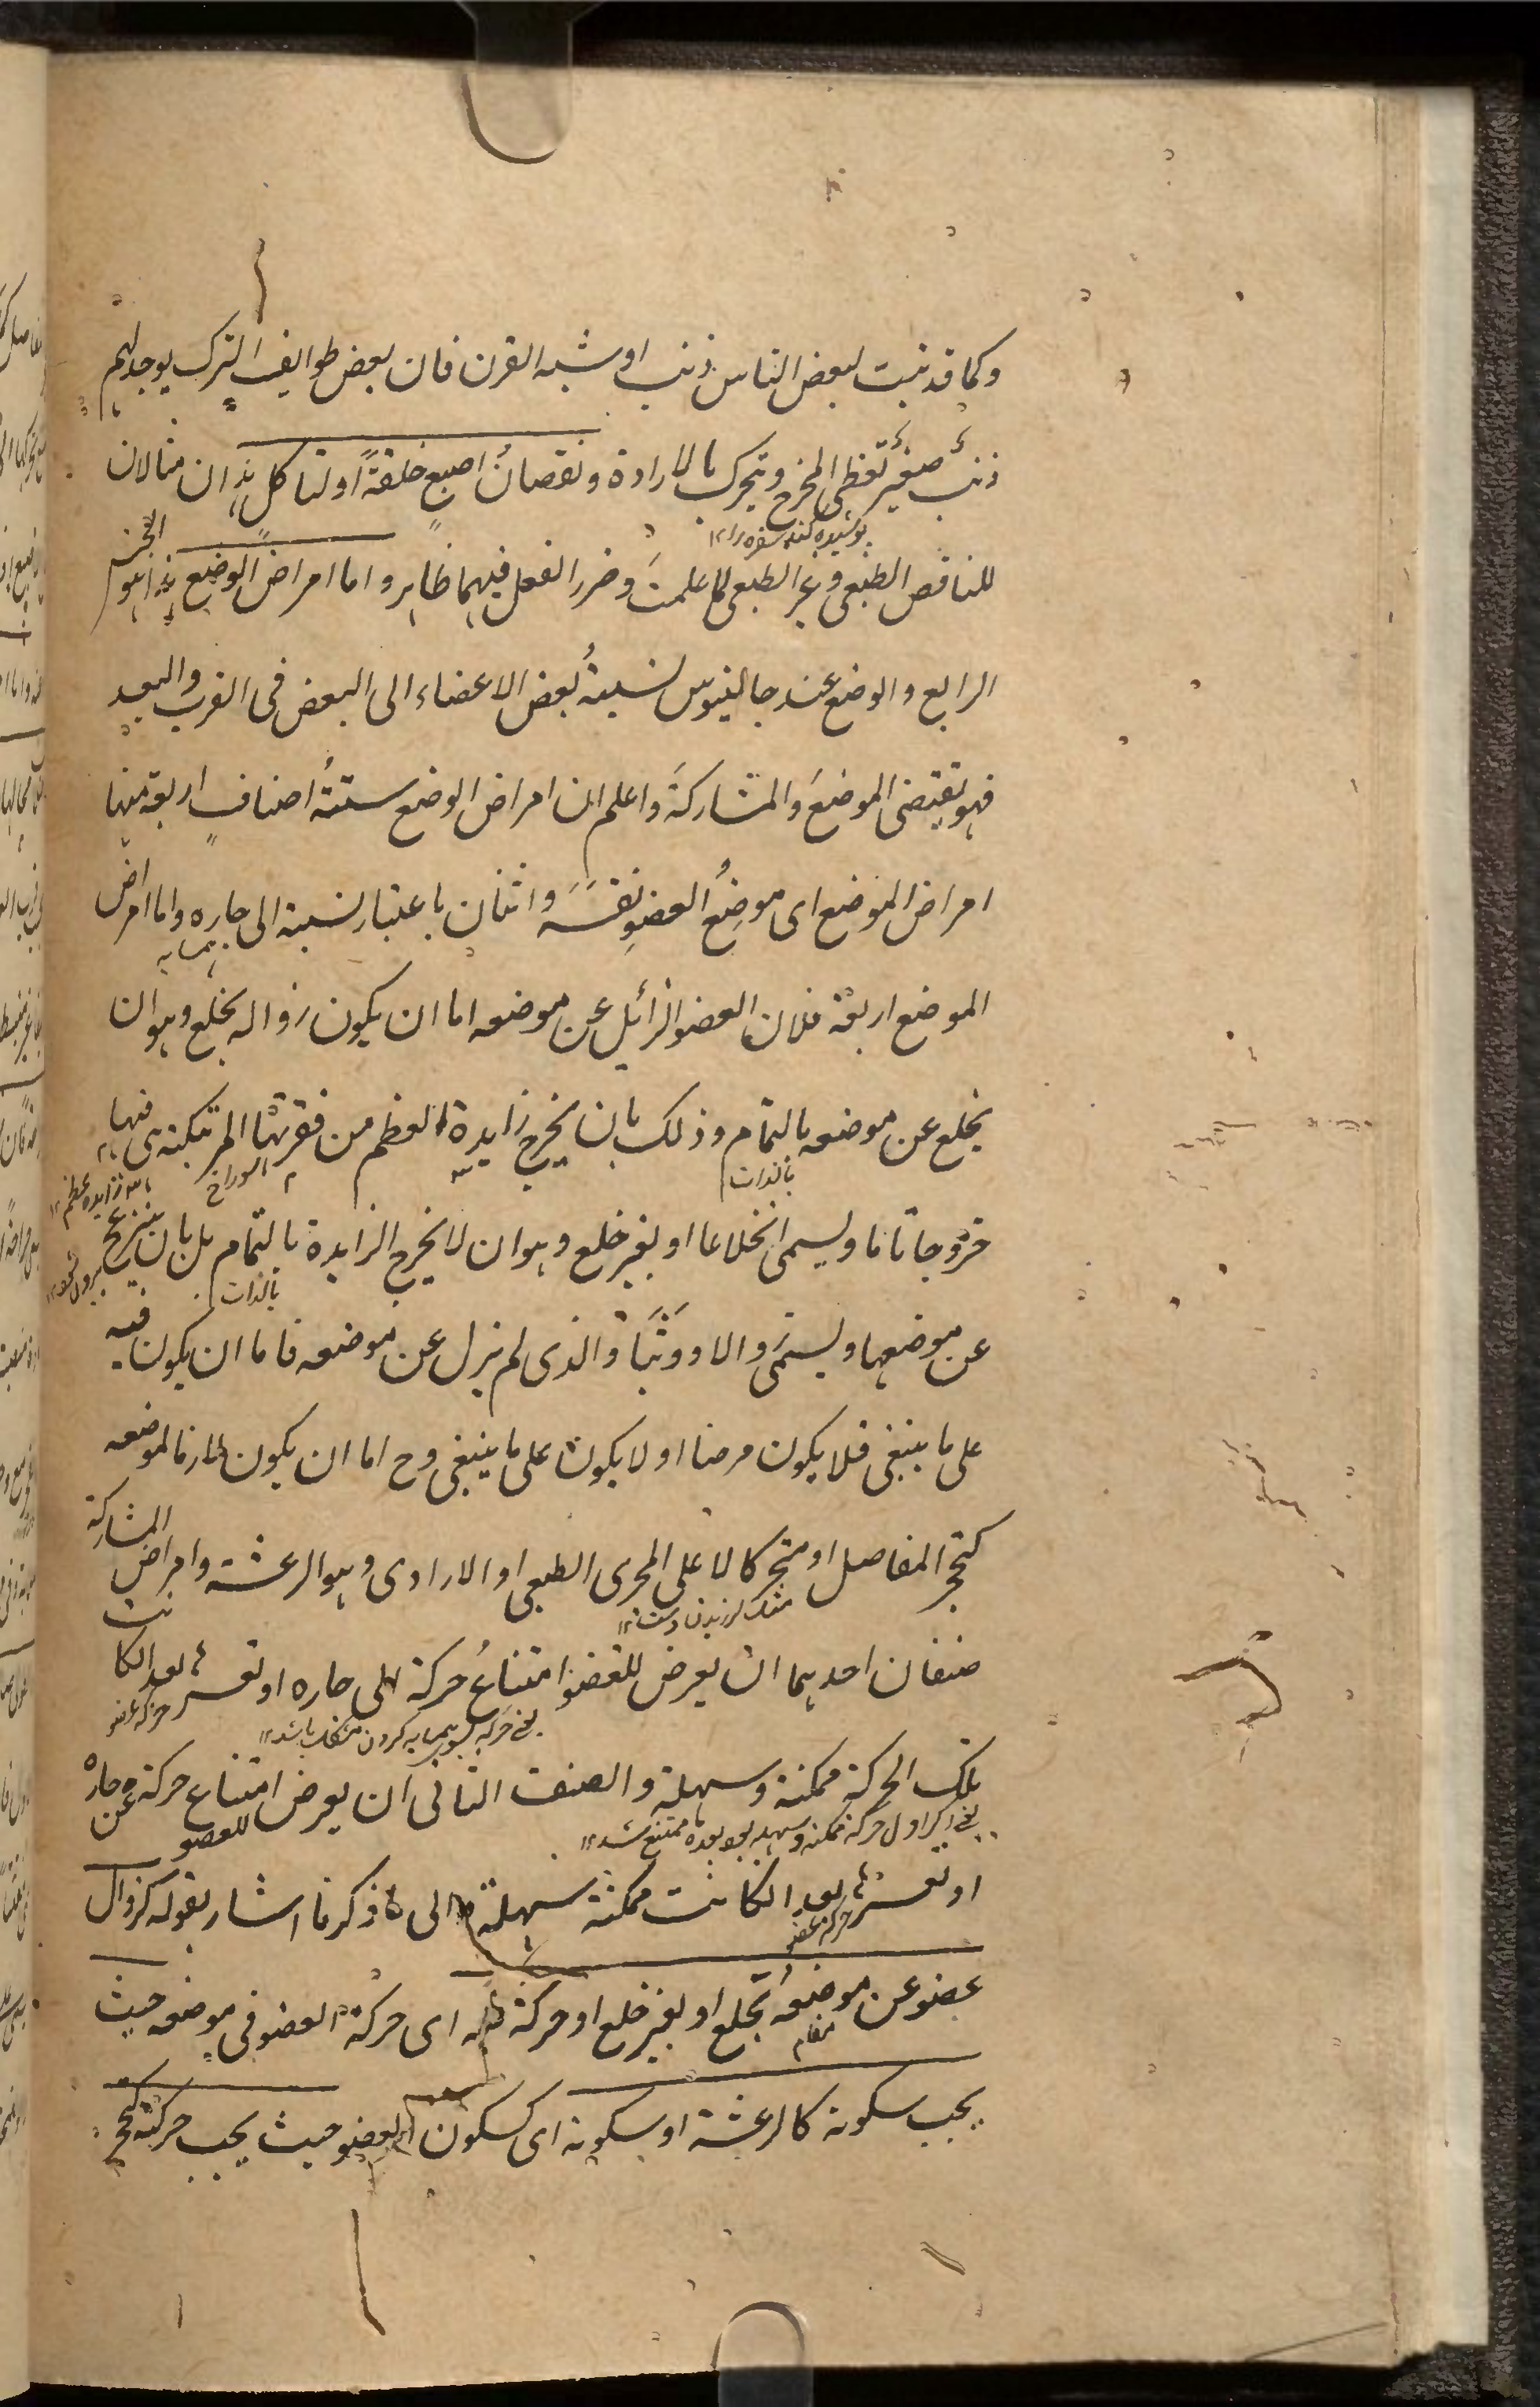 وكما قد نبت لبعض الناس ذنب او شبه القرن فان بعض طوايف الترك يوجد لهم
ذنب صغير تغطى المخرج ويتحرك بالارادة ونقصان اصبع خلقةً او لتاكل هذان مثالان
پوشیده کند سفره را ۱۲
للناقص الطبعى وغير الطبعى لما علمت وضرر الفعل فيهما ظاهر واما امراض الوضع هذا هو الجنس
الرابع والوضع عند جالينوس نسبةُ بعض الاعضاء الى البعض فى القرب والبعد
فهو تقتضى الموضع والمشاركة واعلم ان امراض الوضع ستةُ اصناف اربعة منها
امراض الموضع اى موضِعُ العضوِ نفسَه واثنان باعتبار نسبة الى جاره واما امراض
همسایه
الموضع اربعة فلان العضو الزائل عن موضعه اما ان يكون زواله بخلع وهو ان
يخلع عن موضعه بالتمام وذلك بان يخرج زايدة العظم من فقرتها المرتكنة هى فيها
بالذات
سوراخ
زایده عظم ۱۲
خروجا تاما ويسمى انخلاعا او بغير خلع وهو ان لا يخرج الزايدة بالتمام بل بان ينزعج
بالذات
بیرون شود ۱۲
عن موضعها ويسمى زوالا ووثبًا والذى لم يزل عن موضعه فاما ان يكون فيه
على ما ينبغى فلا يكون مرضا او لا يكون على ما ينبغى وح اما ان يكون لازما لموضعه
كتحجر المفاصل او متحركا لا على المجرى الطبعى او الارادى وهو الرعشة وامراض المشاركة
مثلا لرزیدن دست ۱۲
صنفان احدهما ان يعرض للعضو امتناعُ حركة الى جاره او تعسرها بعد ان كانت
یعنی حرکه بسوی همسایه کردن مشکل باشد ۱۲
حركة عضو
تلك الحركة ممكنة وسهلة والصنف الثانى ان يعرض للعضو امتناع حركة عن جاره
یعنی اگر اول حرکة ممکنه وسهله بود بعده ممتنع شد ۱۲
او تعسرها بعد ان كانت ممكنة سهلة الى ما ذكرنا اشار بقوله كزوال
حركة عضو
عضو عن موضعه بخلع او بغير خلع او حركة فيه اى حركة العضو فى موضعه حيث
مقام
يجب سكونه كالرعشة او سكونه اى كسكون العضو حيث يجب حركته كتحجر